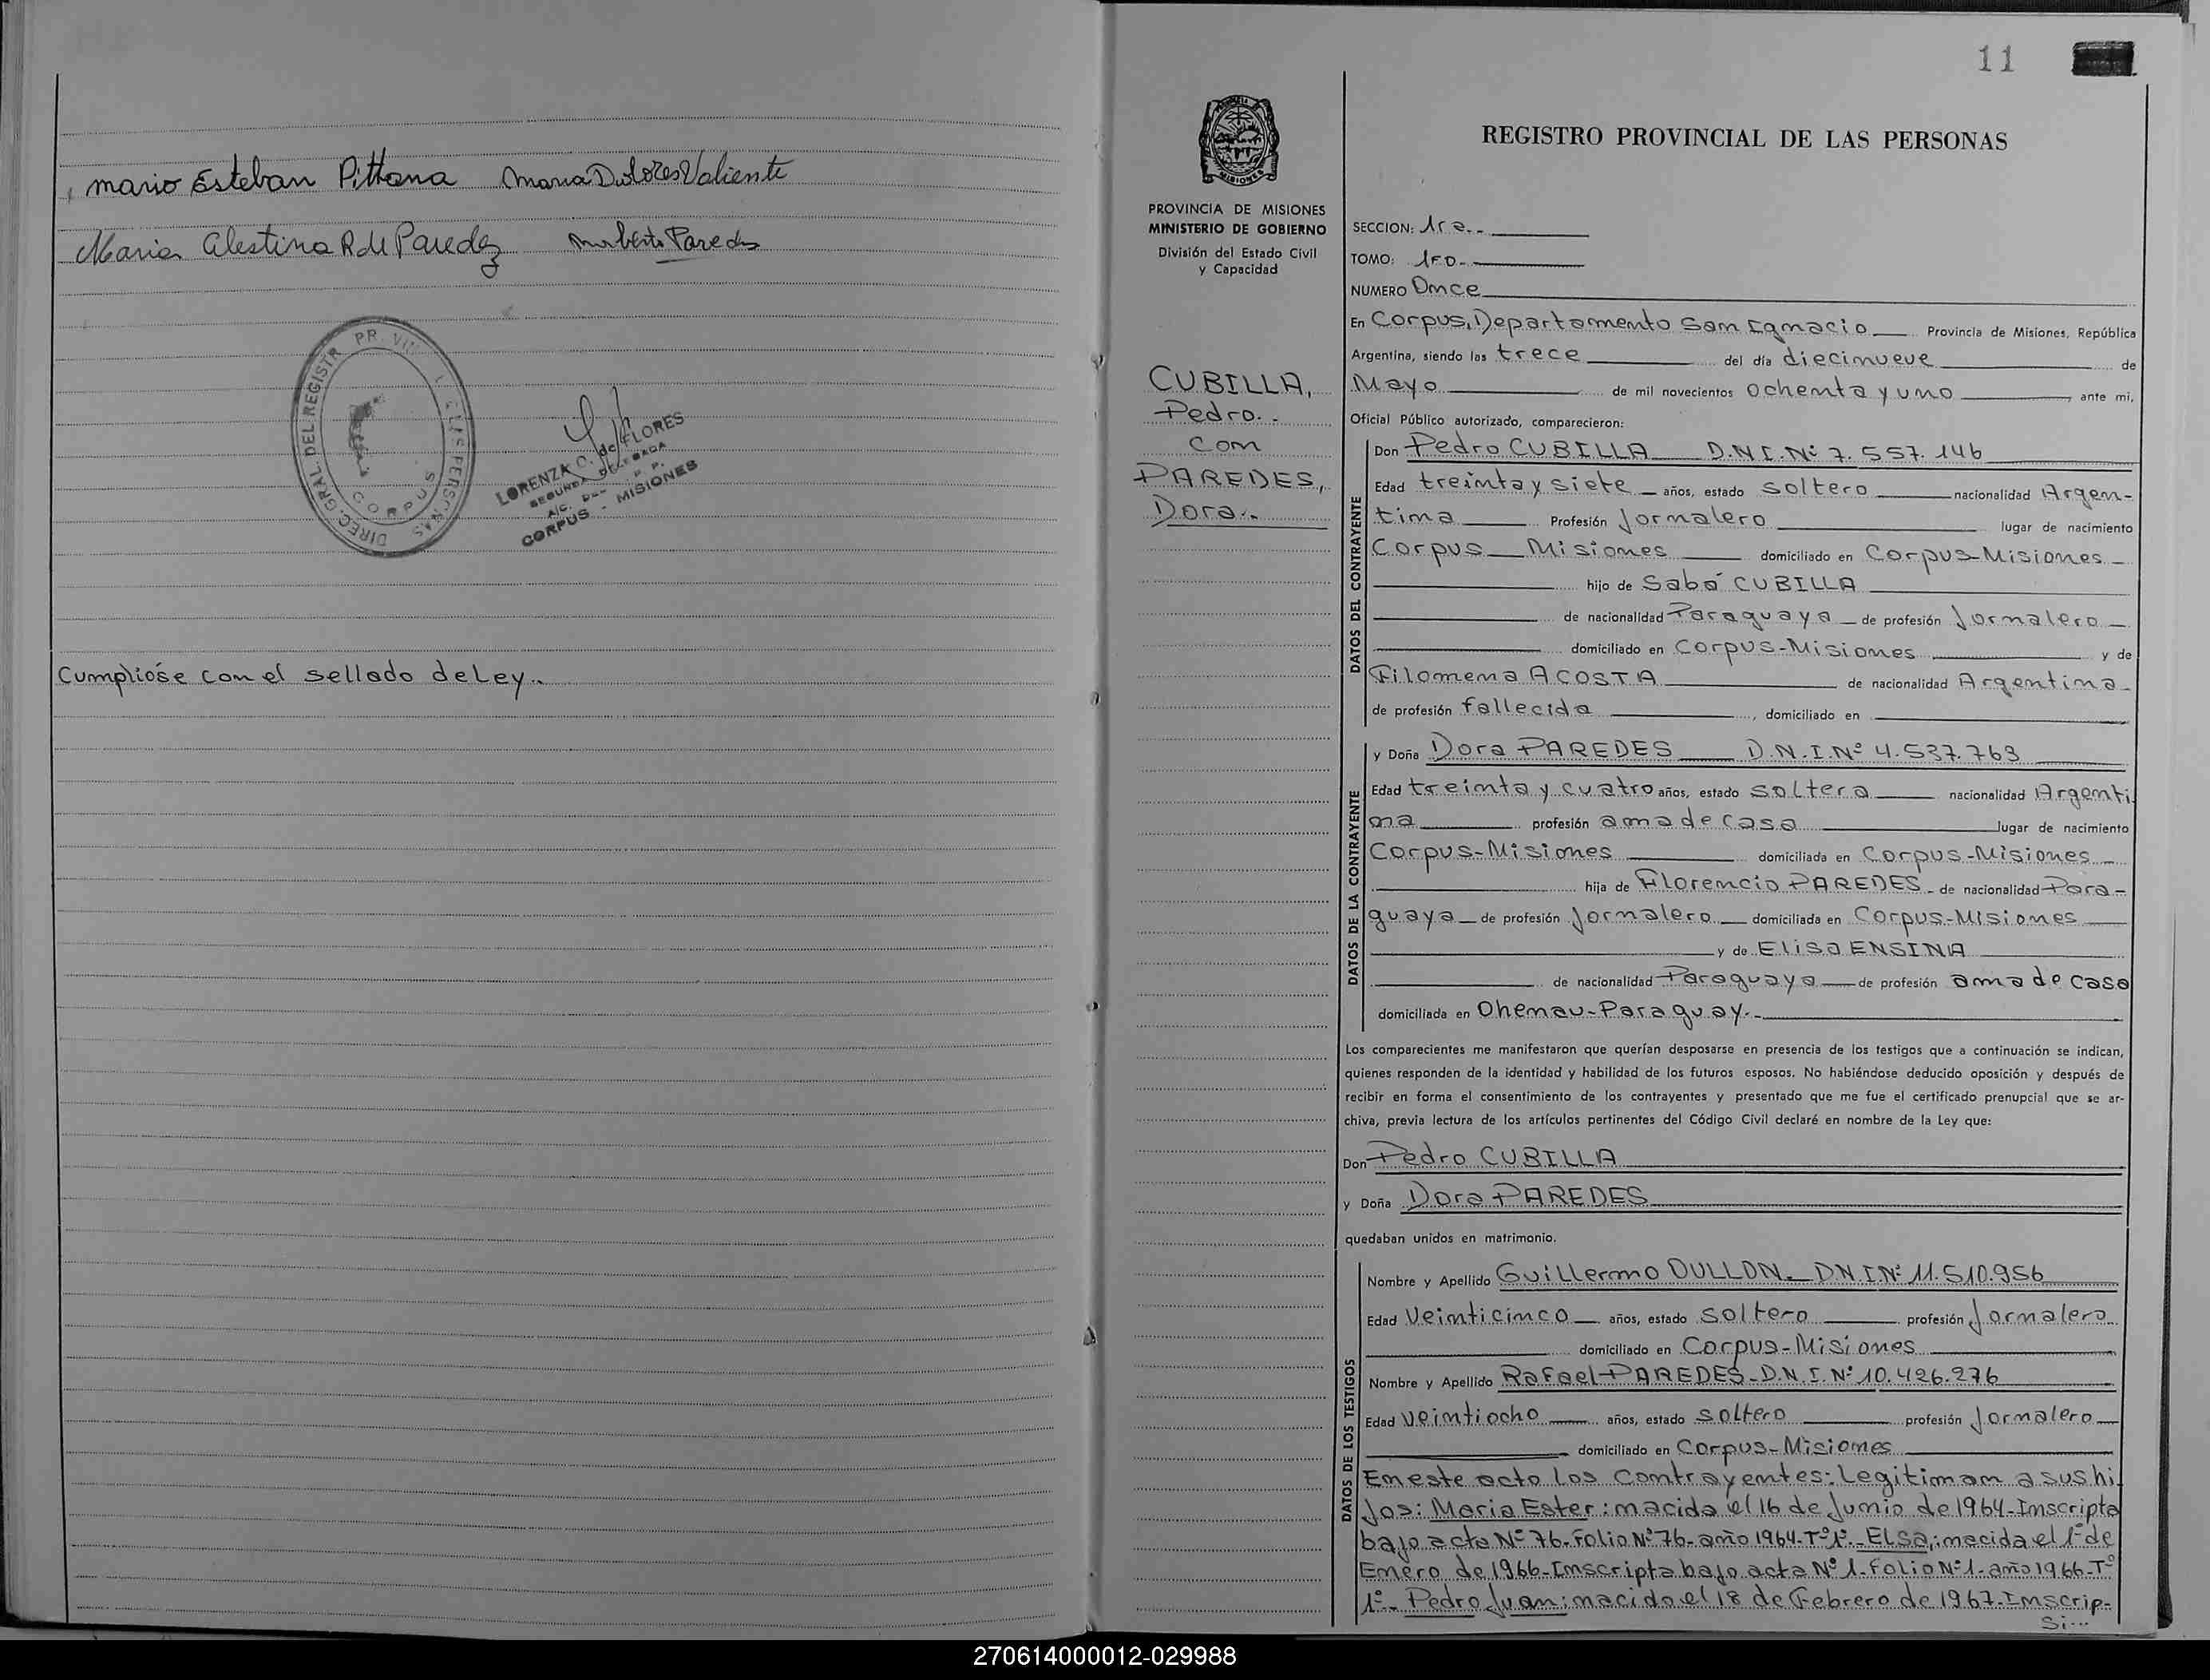 mario Esteban Pittana Maria Dolores Valiente
Maria Celestina R de Paredez Norberto Paredes
DIREC. GRAL DEL REGISTR PR PERSONAS
CORPUS
LORENZA C. de FLORES
SEGUNDA
A/C. P.
CORPUS - MISIONES
Cumplióse con el sellado de Ley..
11
REGISTRO PROVINCIAL DE LAS PERSONAS
MISIONES
PROVINCIA DE MISIONES
MINISTERIO DE GOBIERNO
División del Estado Civil
y Capacidad
CUBILLA,
Pedro..
con
PAREDES,
Dora..
SECCION: 1ra..
TOMO: 1ro.
NUMERO Once
En Corpus, Departamento San Ignacio Provincia de Misiones, República
Argentina, siendo las trece del día diecinueve de
Mayo de mil novecientos ochenta y uno ante mi,
Oficial Público autorizado, comparecieron:
DATOS DEL CONTRAYENTE
Don Pedro CUBILLA D.N.I.Nº 7.557.146
Edad treinta y siete años, estado soltero nacionalidad Argen-
tina Profesión Jornalero lugar de nacimiento
Corpus Misiones domiciliado en Corpus-Misiones
hijo de Sabá CUBILLA
de nacionalidad Paraguaya de profesión Jornalero
domiciliado en Corpus-Misiones y de
Filomena ACOSTA de nacionalidad Argentina
de profesión fallecida, domiciliado en
DATOS DE LA CONTRAYENTE
y Doña Dora PAREDES D.N.I.Nº 4.537.763
Edad treinta y cuatro años, estado soltera nacionalidad Argenti
na profesión ama de casa lugar de nacimiento
Corpus-Misiones domiciliada en Corpus-Misiones
hija de Florencio PAREDES de nacionalidad Para-
guaya de profesión Jornalero domiciliada en Corpus-Misiones
y de Elisa ENSINA
de nacionalidad Paraguaya de profesión ama de casa
domiciliada en Ohenau-Paraguay.-
Los comparecientes me manifestaron que querían desposarse en presencia de los testigos que a continuación se indican,
quienes responden de la identidad y habilidad de los futuros esposos. No habiéndose deducido oposición y después de
recibir en forma el consentimiento de los contrayentes y presentado que me fue el certificado prenupcial que se ar-
chiva, previa lectura de los artículos pertinentes del Código Civil declaré en nombre de la Ley que:
Don Pedro CUBILLA
y Doña Dora PAREDES
quedaban unidos en matrimonio.
DATOS DE LOS TESTIGOS
Nombre y Apellido Guillermo DULLON.- D.N.I Nº 11.510.956
Edad Veinticinco años, estado soltero profesión Jornalero
domiciliado en Corpus-Misiones
Nombre y Apellido Rafael PAREDES-D.N.I.Nº 10.426.276
Edad Veintiocho años, estado soltero profesión Jornalero
domiciliado en Corpus-Misiones
En este acto los Contrayentes: Legitiman a sus hi
Jos: Maria Ester: nacida el 16 de Junio de 1964-Inscripta
bajo acta Nº 76-Folio Nº 76-año 1964-Tº1º.-Elsa: nacida el 1º de
Enero de 1966-Inscripta bajo acta Nº 1-Folio Nº 1-año 1966-Tº
1º- Pedro Juan: nacido el 18 de Febrero de 1967-Inscrip-
Si...
270614000012-029988